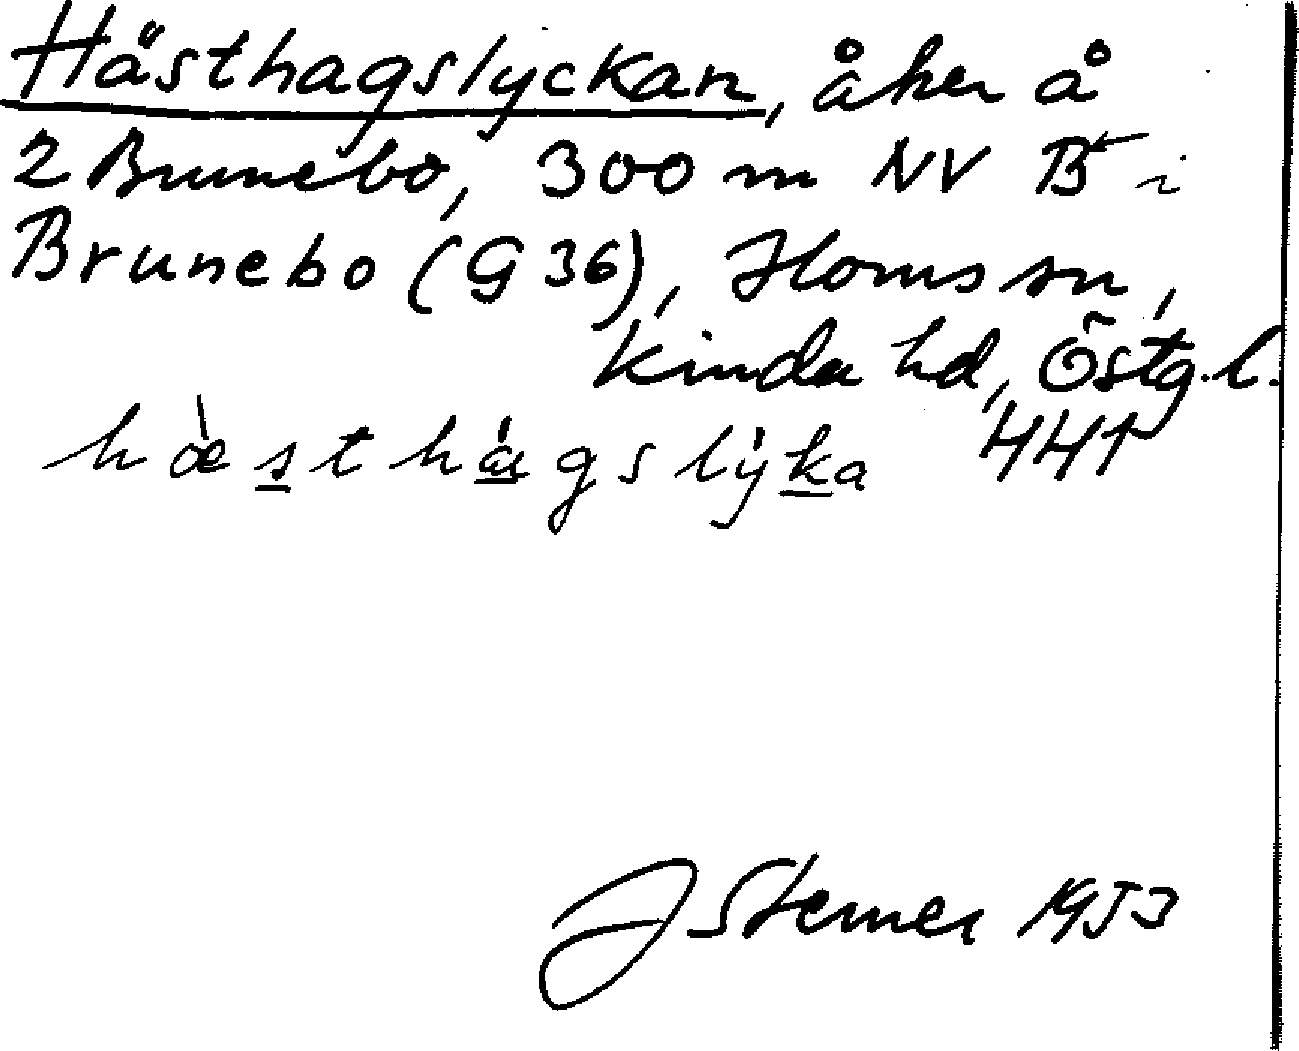 Hästhagslyckan, åker å
2 Brunebo, 300 m NV B i
Brunebo (G 36), Horns sn,
Kinda hd, Östg.l.
hæ̀sthágslýka 441
J Sterner 1953